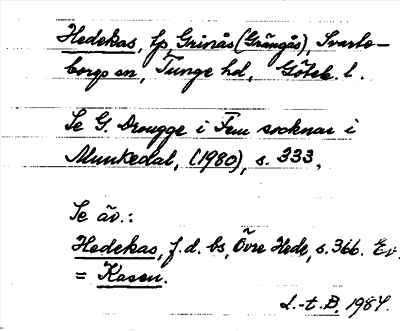 Hedekas, tp, Grinås (Grängås), Svarte-
borgs sn, Tunge hd, Göteb. l.
Se G. Drougge i Fem socknar i
Munkedal, (1980), s. 333,
Se äv.:
Hedekas, f. d. bs, Övre Hede, s. 366. Ev.
= Kasen.
L.-t. B. 1987.